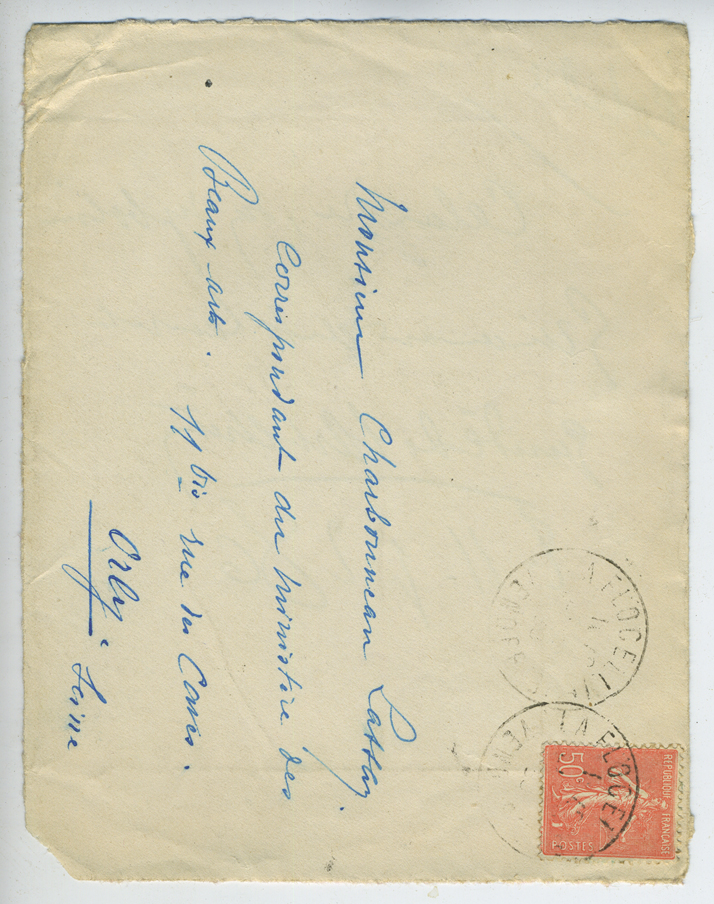 Monsieur Charbonneau Lassay.
Correspondant du ministère des
Beaux-arts. 11 bis rue des Caves.
Orly. Seine
LA FLOCELLI
LA FLOCEL
REPUBLIQUE FRANÇAISE
50c
POSTES